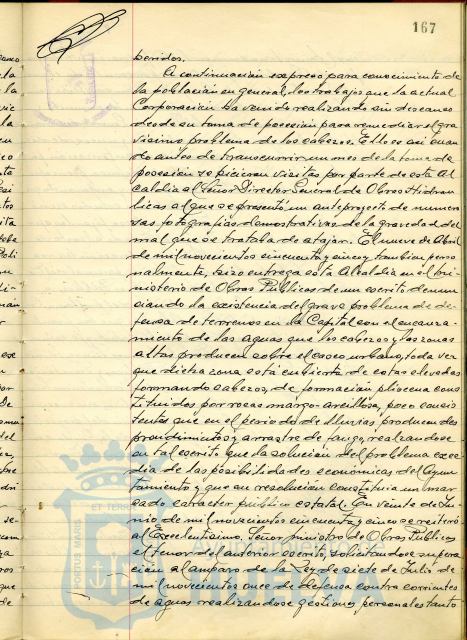 167
perridos.
A continuación expresó para conocimiento de
la población en general, los trabajos que la actual
Corporación ha venido realizando sin descanso
desde su toma de posesión para remediar el gra
vísimo problema de los cabezos. Ello es así cuan
do antes de transcurrir un mes de la toma de
posesión se hicieron visitas por parte de esta Al
caldía al Señor Director General de Obras Hidrau
licas al que se presentó un anteproyecto de numero
sas fotografías demostrativas de la gravedad del
mal que se trataba de atajar. El nueve de Abril
de mil novecientos cincuenta y cinco y tambien perso
nalmente, hizo entrega esta Alcaldía en el Mi
nisterio de Obras Públicas de un escrito denun
ciando la existencia del grave problema de de
fensa de terrenos en la Capital con el encauza
miento de las aguas que los cabezos y las zonas
altas producen sobre el casco urbano, toda vez
que dicha zona está cubierta de cotas elevadas
formando cabezos, de formación pliocena cons
tituidos por rocas margo-arcillosa, poco consis
tentes que en el periodo de lluvias, producen des
prendimientos y arrastre de fango, realzandose
en tal escrito que la solución del problema exce
día de las posibilidades económicas del Ayun
tamiento y que su resolución constituía un mar
cado caracter público estatal. En veinte de Ju
nio de mil novecientos cincuenta y cinco se reiteró
al Excelentísimo Señor Ministro de Obras Públicas
el tenor del anterior escrito, solicitandose supera
ción al amparo de la Ley de siete de Julio de
mil novecientos once de defensa contra corrientes
de aguas realizandose gestiones personales tanto
PORTUS MARIS
ET TERRAE